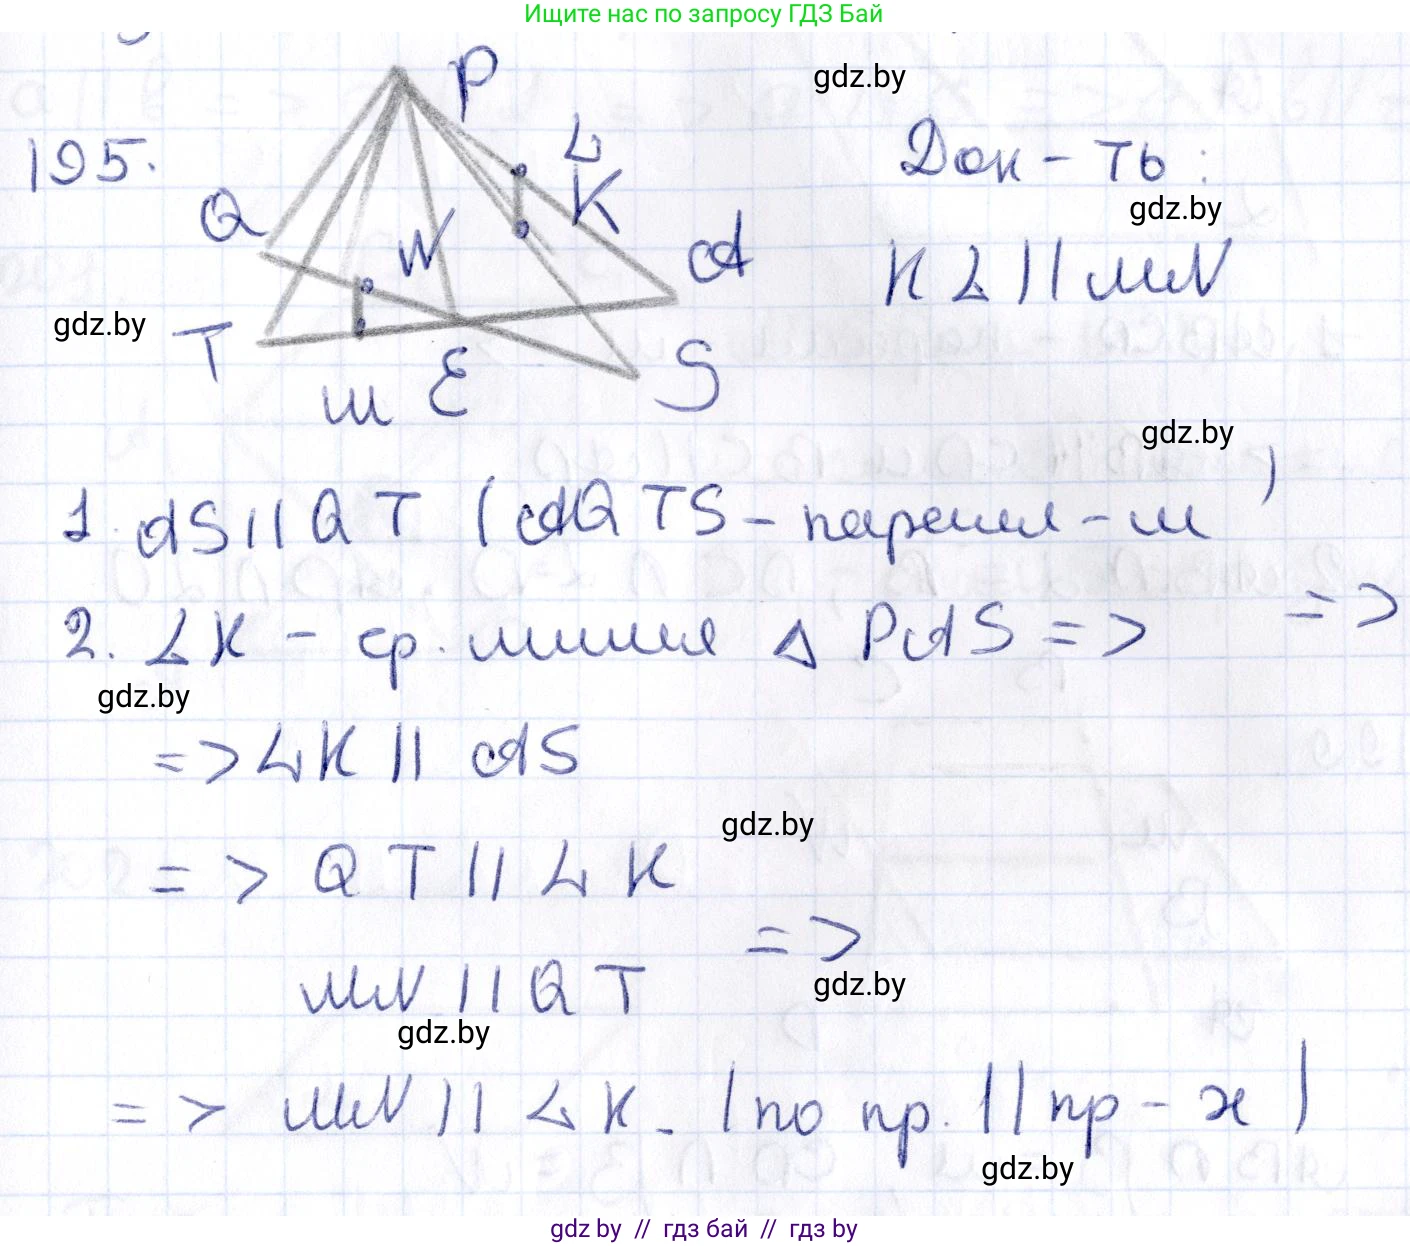 Ищите нас по запросу ГДЗ Бай
195.
P
L
K
Q
N
A
T
M
E
S
gdz.by
Док-ть:
gdz.by
KL || MN
gdz.by
gdz.by
1. AS || QT (AQTS - паралл-м) =>
2. LK - ср. линия △ PAS =>
gdz.by
=> LK || AS
gdz.by
=> QT || LK
=>
MN || QT
gdz.by
gdz.by
=> MN || LK. (по пр. || пр-х)
gdz.by
gdz.by // гдз бай // гдз by